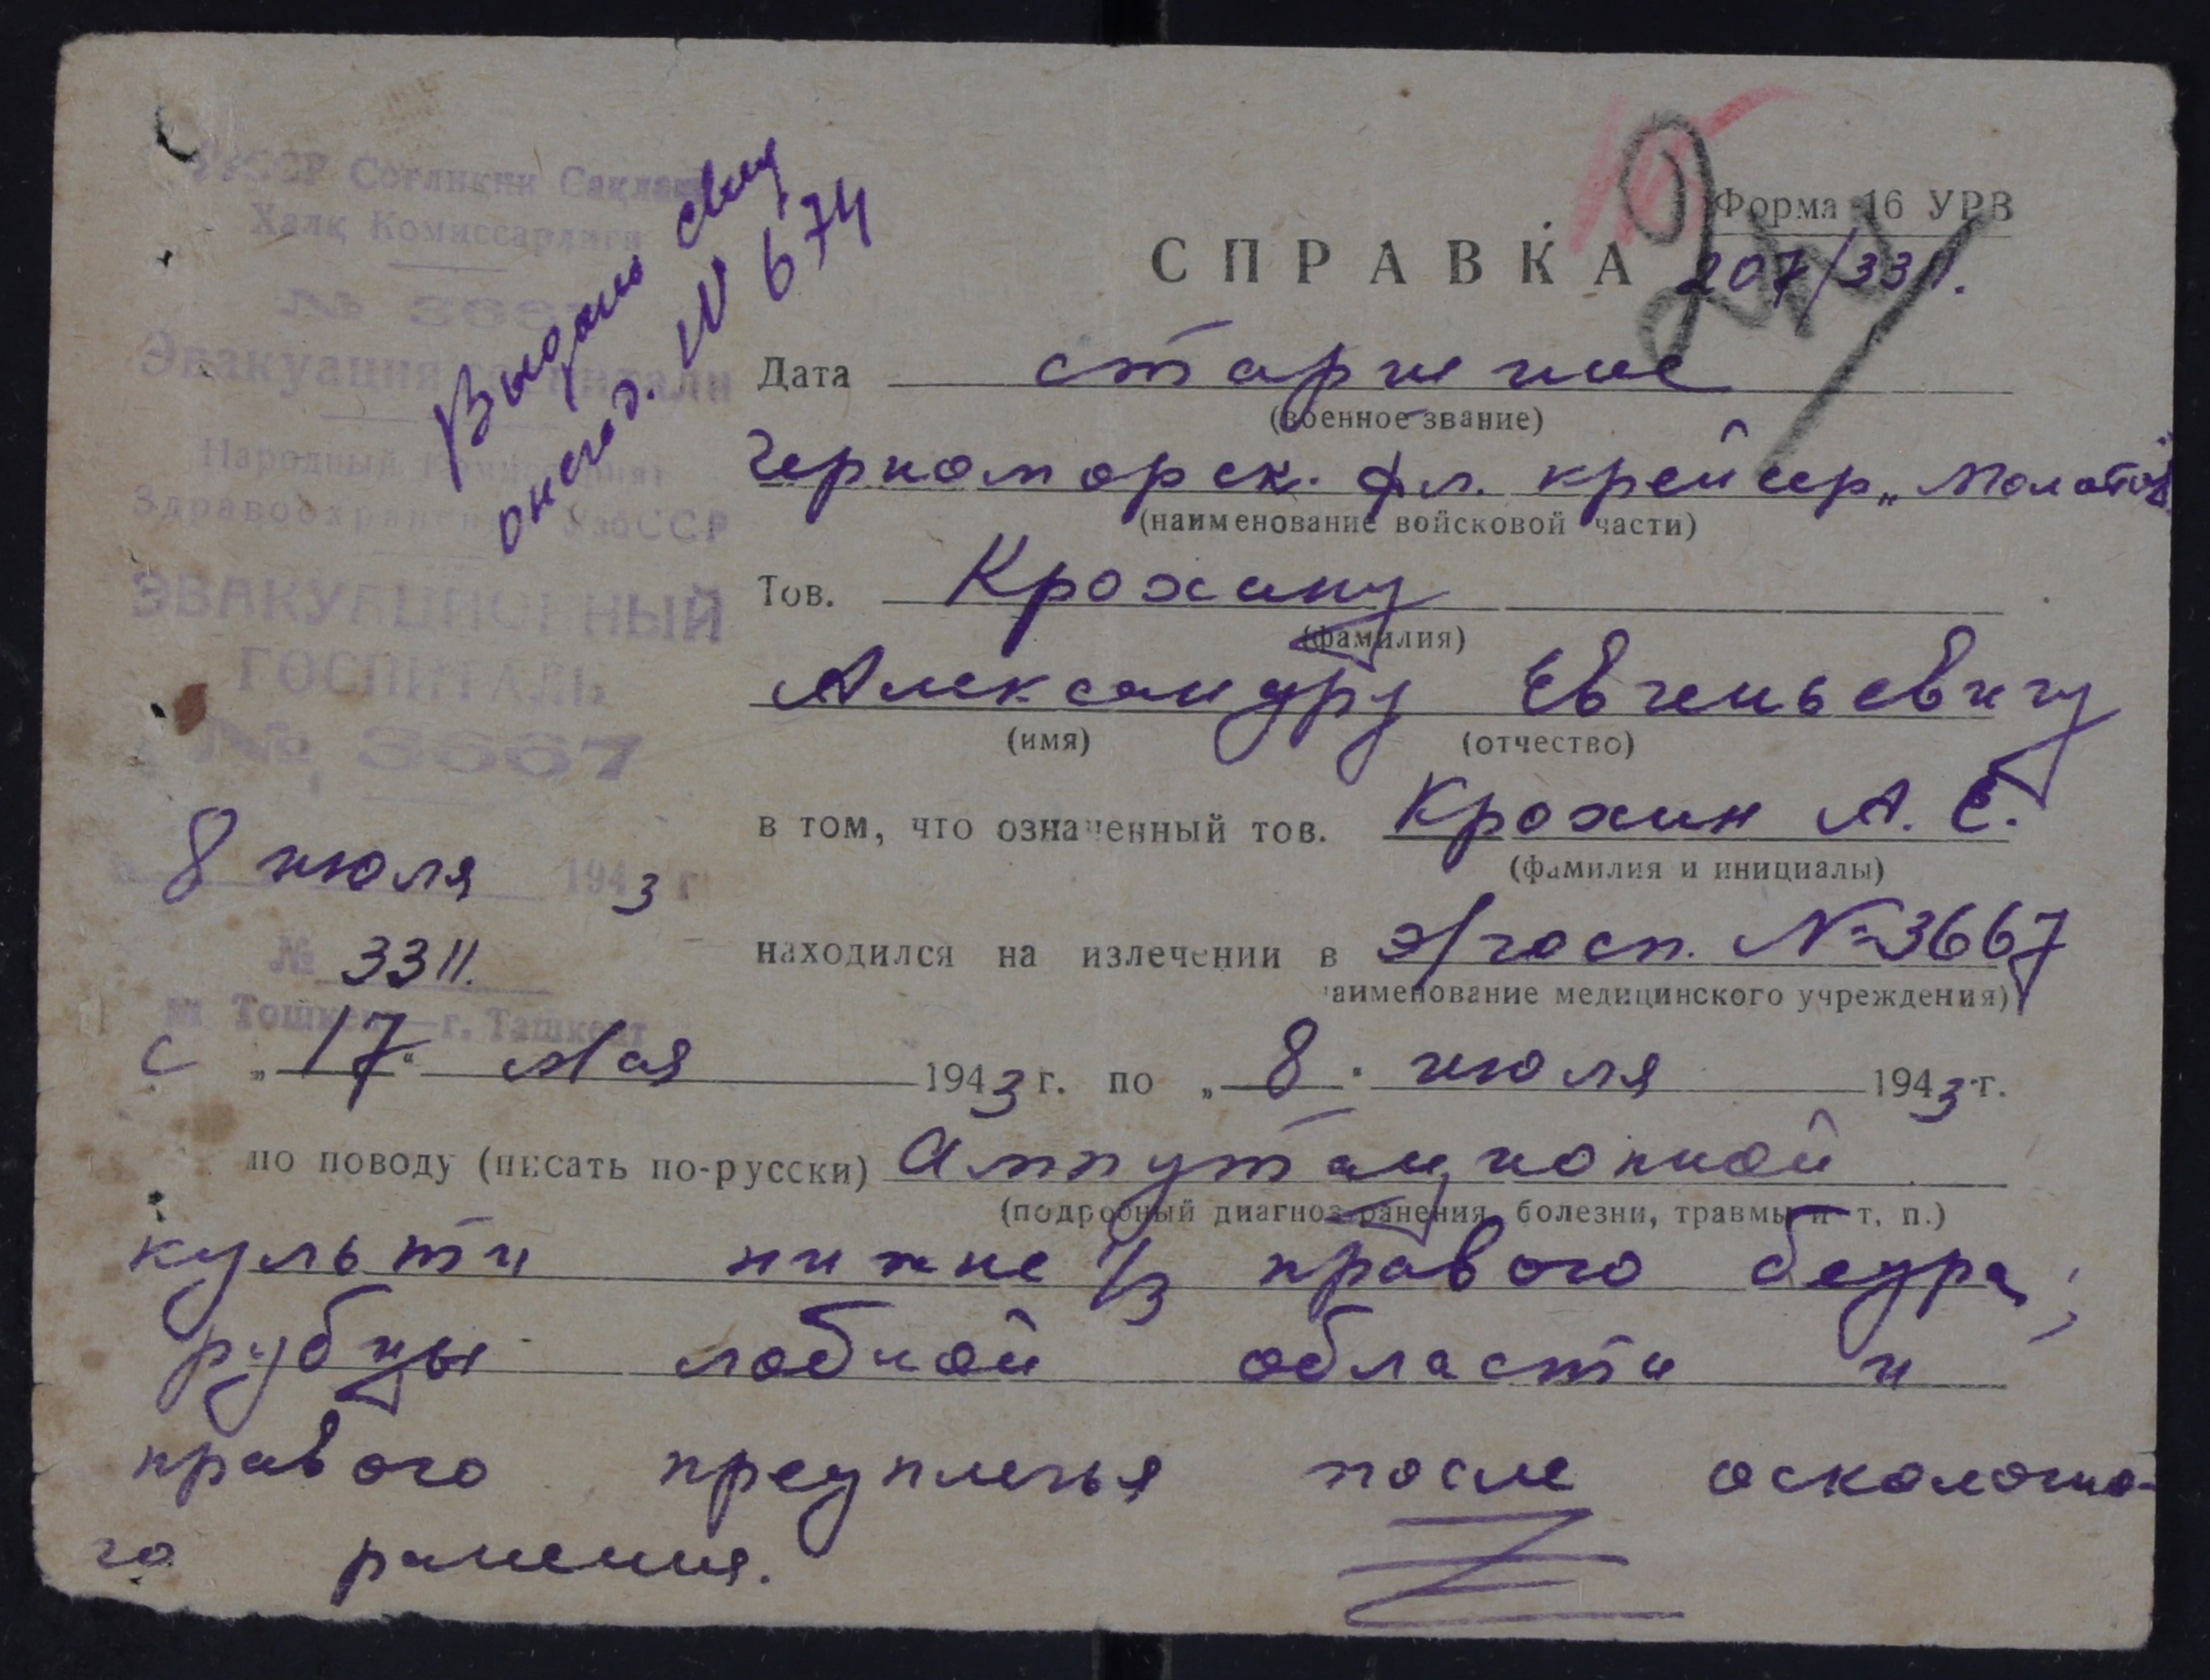 УзССР Соғлиқни Сақлаш
Халқ Комиссарлиги
№ 3667
Эвакуация госпитали
Народный Комиссариат
Здравоохранения УзбССР
ЭВАКУАЦИОННЫЙ
ГОСПИТАЛЬ
№ 3667
8 июля 1943 г
№ 3311.
Тошкент — г. Ташкент
Выдано
№ 674
Форма 16 УРВ
СПРАВКА
207/331.
Дата старшине
(военное звание)
Черноморск. фл. крейсер „Молотов
(наименование войсковой части)
Тов. Крохину
(фамилия)
Александру Евгеньевичу
(имя) (отчество)
в том, что означенный тов. Крохин А. Е.
(фамилия и инициалы)
находился на излечении в э/госп. № 3667
наименование медицинского учреждения)
с „17“ мая 1943 г. по „8" июля 1943 г.
по поводу (писать по-русски) Ампутационной
(подробный диагноз ранения, болезни, травмы и т. п.)
культи нижне 1/3 правого бедра;
рубцы лобной области и
правого предплечья после осколочно-
го ранения.